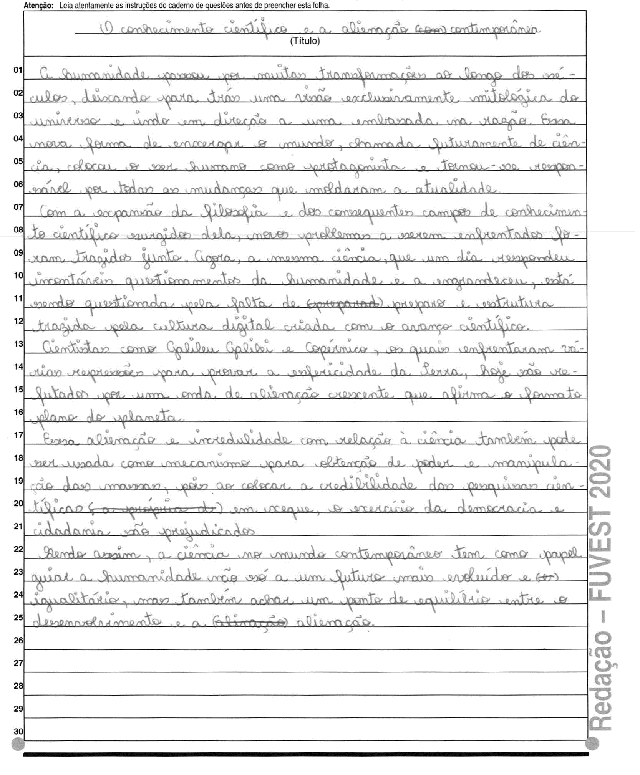 Atenção: Leia atentamente as instruções do caderno de questões antes de preencher esta folha.
O conhecimento científico e a alienação (com) contemporânea
(Título)
01 A humanidade passou por muitas transformações ao longo dos sé-
02 culos, deixando para trás uma visão exclusivamente mitológica do
03 universo e indo em direção a uma embasada na razão. Essa
04 nova forma de enxergar o mundo, chamada futuramente de ciên-
05 cia, colocou o ser humano como protagonista e tornou-se respon-
06 sável por todas as mudanças que moldaram a atualidade.
07 Com a expansão da filosofia e dos consequentes campos de conhecimen-
08 to científico surgidos dela, novos problemas a serem enfrentados fo-
09 ram trazidos junto. Agora, a mesma ciência, que um dia respondeu
10 incontáveis questionamentos da humanidade e a engrandeceu, está
11 sendo questionada pela falta de (preparad) preparo e estrutura
12 trazida pela cultura digital criada com o avanço científico.
13 Cientistas como Galileu Galilei e Copérnico, os quais enfrentaram vá-
14 rias repressões para provar a esfericidade da Terra, hoje são re-
15 futados por uma onda de alienação crescente que afirma o formato
16 plano do planeta.
17 Essa alienação e incredulidade com relação à ciência também pode
18 ser usada como mecanismo para obtenção de poder e manipula-
19 ção das massas, pois ao colocar a credibilidade das pesquisas cien-
20 tíficas (a própria d) em xeque, o exercício da democracia e
21 cidadania são prejudicados
22 Sendo assim, a ciência no mundo contemporâneo tem como papel
23 guiar a humanidade não só a um futuro mais evoluído e
24 igualitário, mas também achar um ponto de equilíbrio entre o
25 desenvolvimento e a (alinação) alienação.
26
27
28
29
30
Redação – FUVEST 2020